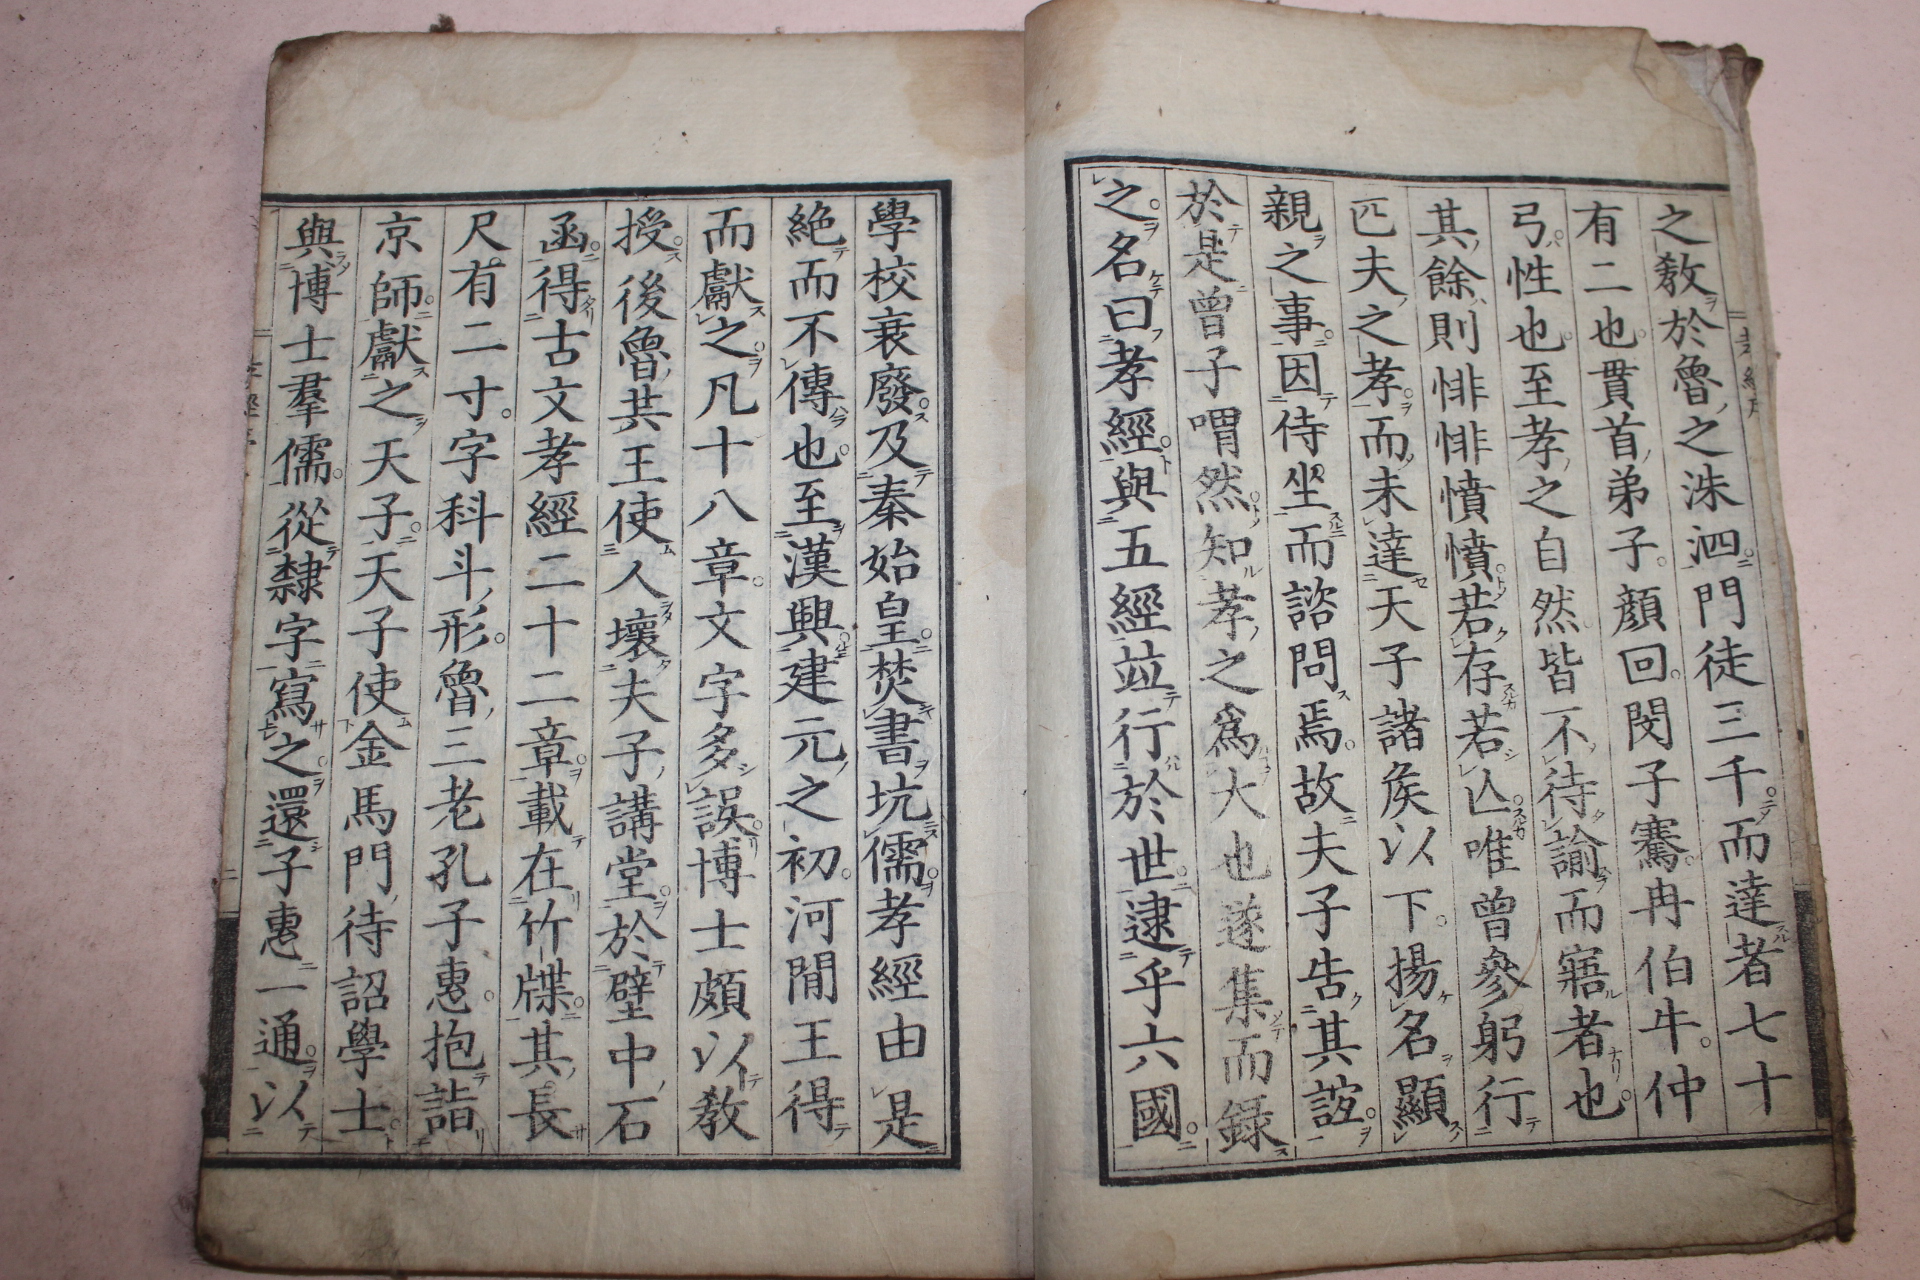 之敎於魯之洙泗門徒三千而達者七十
有二也貫首弟子顔回閔子騫冉伯牛仲
弓性也至孝之自然皆不待諭而寤者也
其餘則悱悱憤憤若存若亾唯曾參躬行
匹夫之孝而未達天子諸矦以下揚名顯
親之事因侍坐而諮問焉故夫子告其誼
於是曾子喟然知孝之爲大也遂集而録
之名曰孝經與五經竝行於世逮乎六國
學校衰廢及秦始皇焚書坑儒孝經由是
絶而不傳也至漢興建元之初河閒王得
而獻之凡十八章文字多誤博士頗以敎
授後魯共王使人壞夫子講堂於壁中石
函得古文孝經二十二章載在竹牒其長
尺有二寸字科斗形魯三老孔子惠抱詣
京師獻之天子天子使金馬門待詔學士
與博士羣儒從隸字寫之還子惠一通以